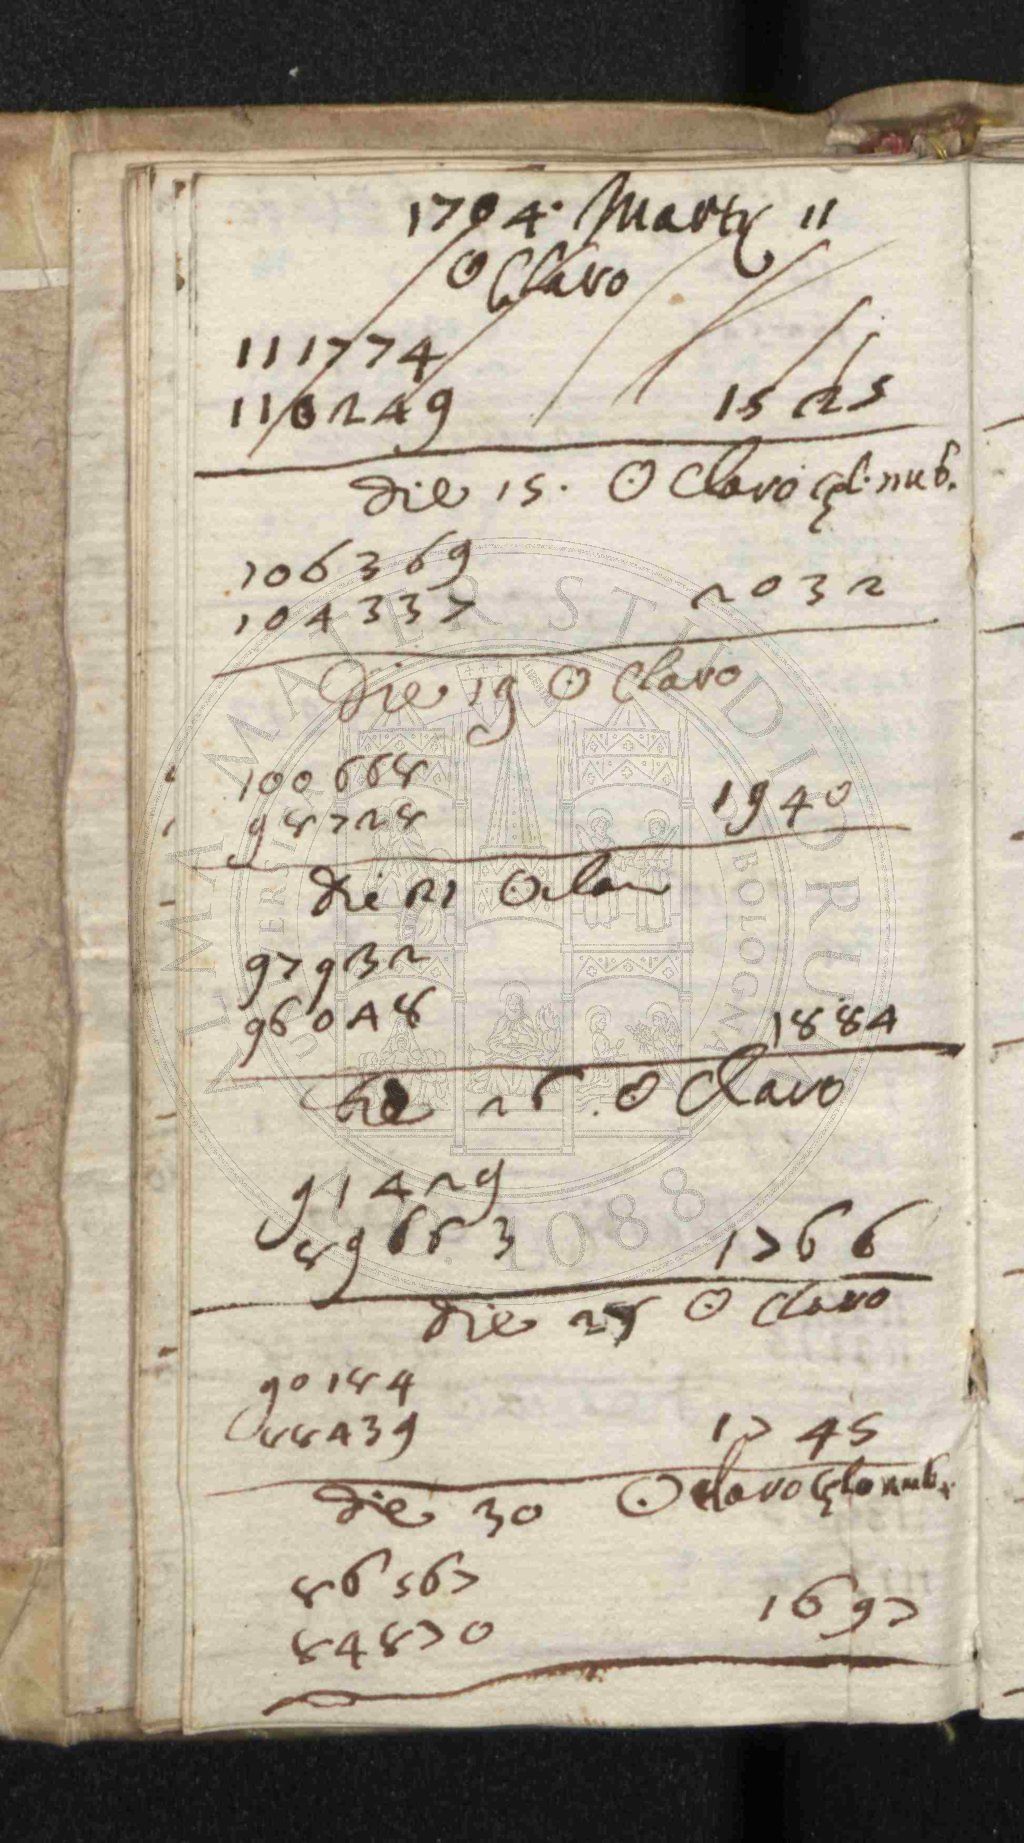 1704. Martij 11
☉ Claro
111774
110249 1525
Die 15. ☉ Claro nub.
106369
104337 2032
Die 19 ☉ Claro
100668
98728 1940
Die 21 ☉ clar
97932
96048 1884
Die 26. ☉ Claro
91429
89663 1766
Die ☉ claro
90184
88439 1745
Die 30 ☉ claro nub.
86567
84870 1697
ALMA MATER STUDIORUM
UNIVERSITÀ DI BOLOGNA
A.D. 1088